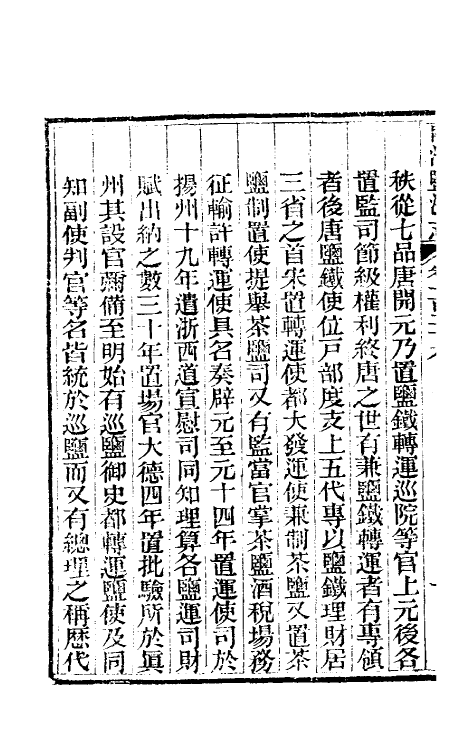 秩從七品唐開元乃置鹽鐵轉運巡院等官上元後各
置監司節級權利終唐之世有兼鹽鐵轉運者有專領
者後唐鹽鐵使位戸部度支上五代專以鹽鐵理財居
三省之首宋置轉運使都大發運使兼制茶鹽又置茶
鹽制置使提舉茶鹽司又有監當官掌茶鹽酒稅場務
征輸許轉運使具名奏辟元至元十四年置運使司於
揚州十九年遣浙西道宣慰司同知理算各鹽運司財
賦出納之數三十年置場官大德四年置批驗所於眞
州其設官彌備至明始有巡鹽御史都轉運鹽使及同
知副使判官等名皆統於巡鹽而又有總理之稱歷代